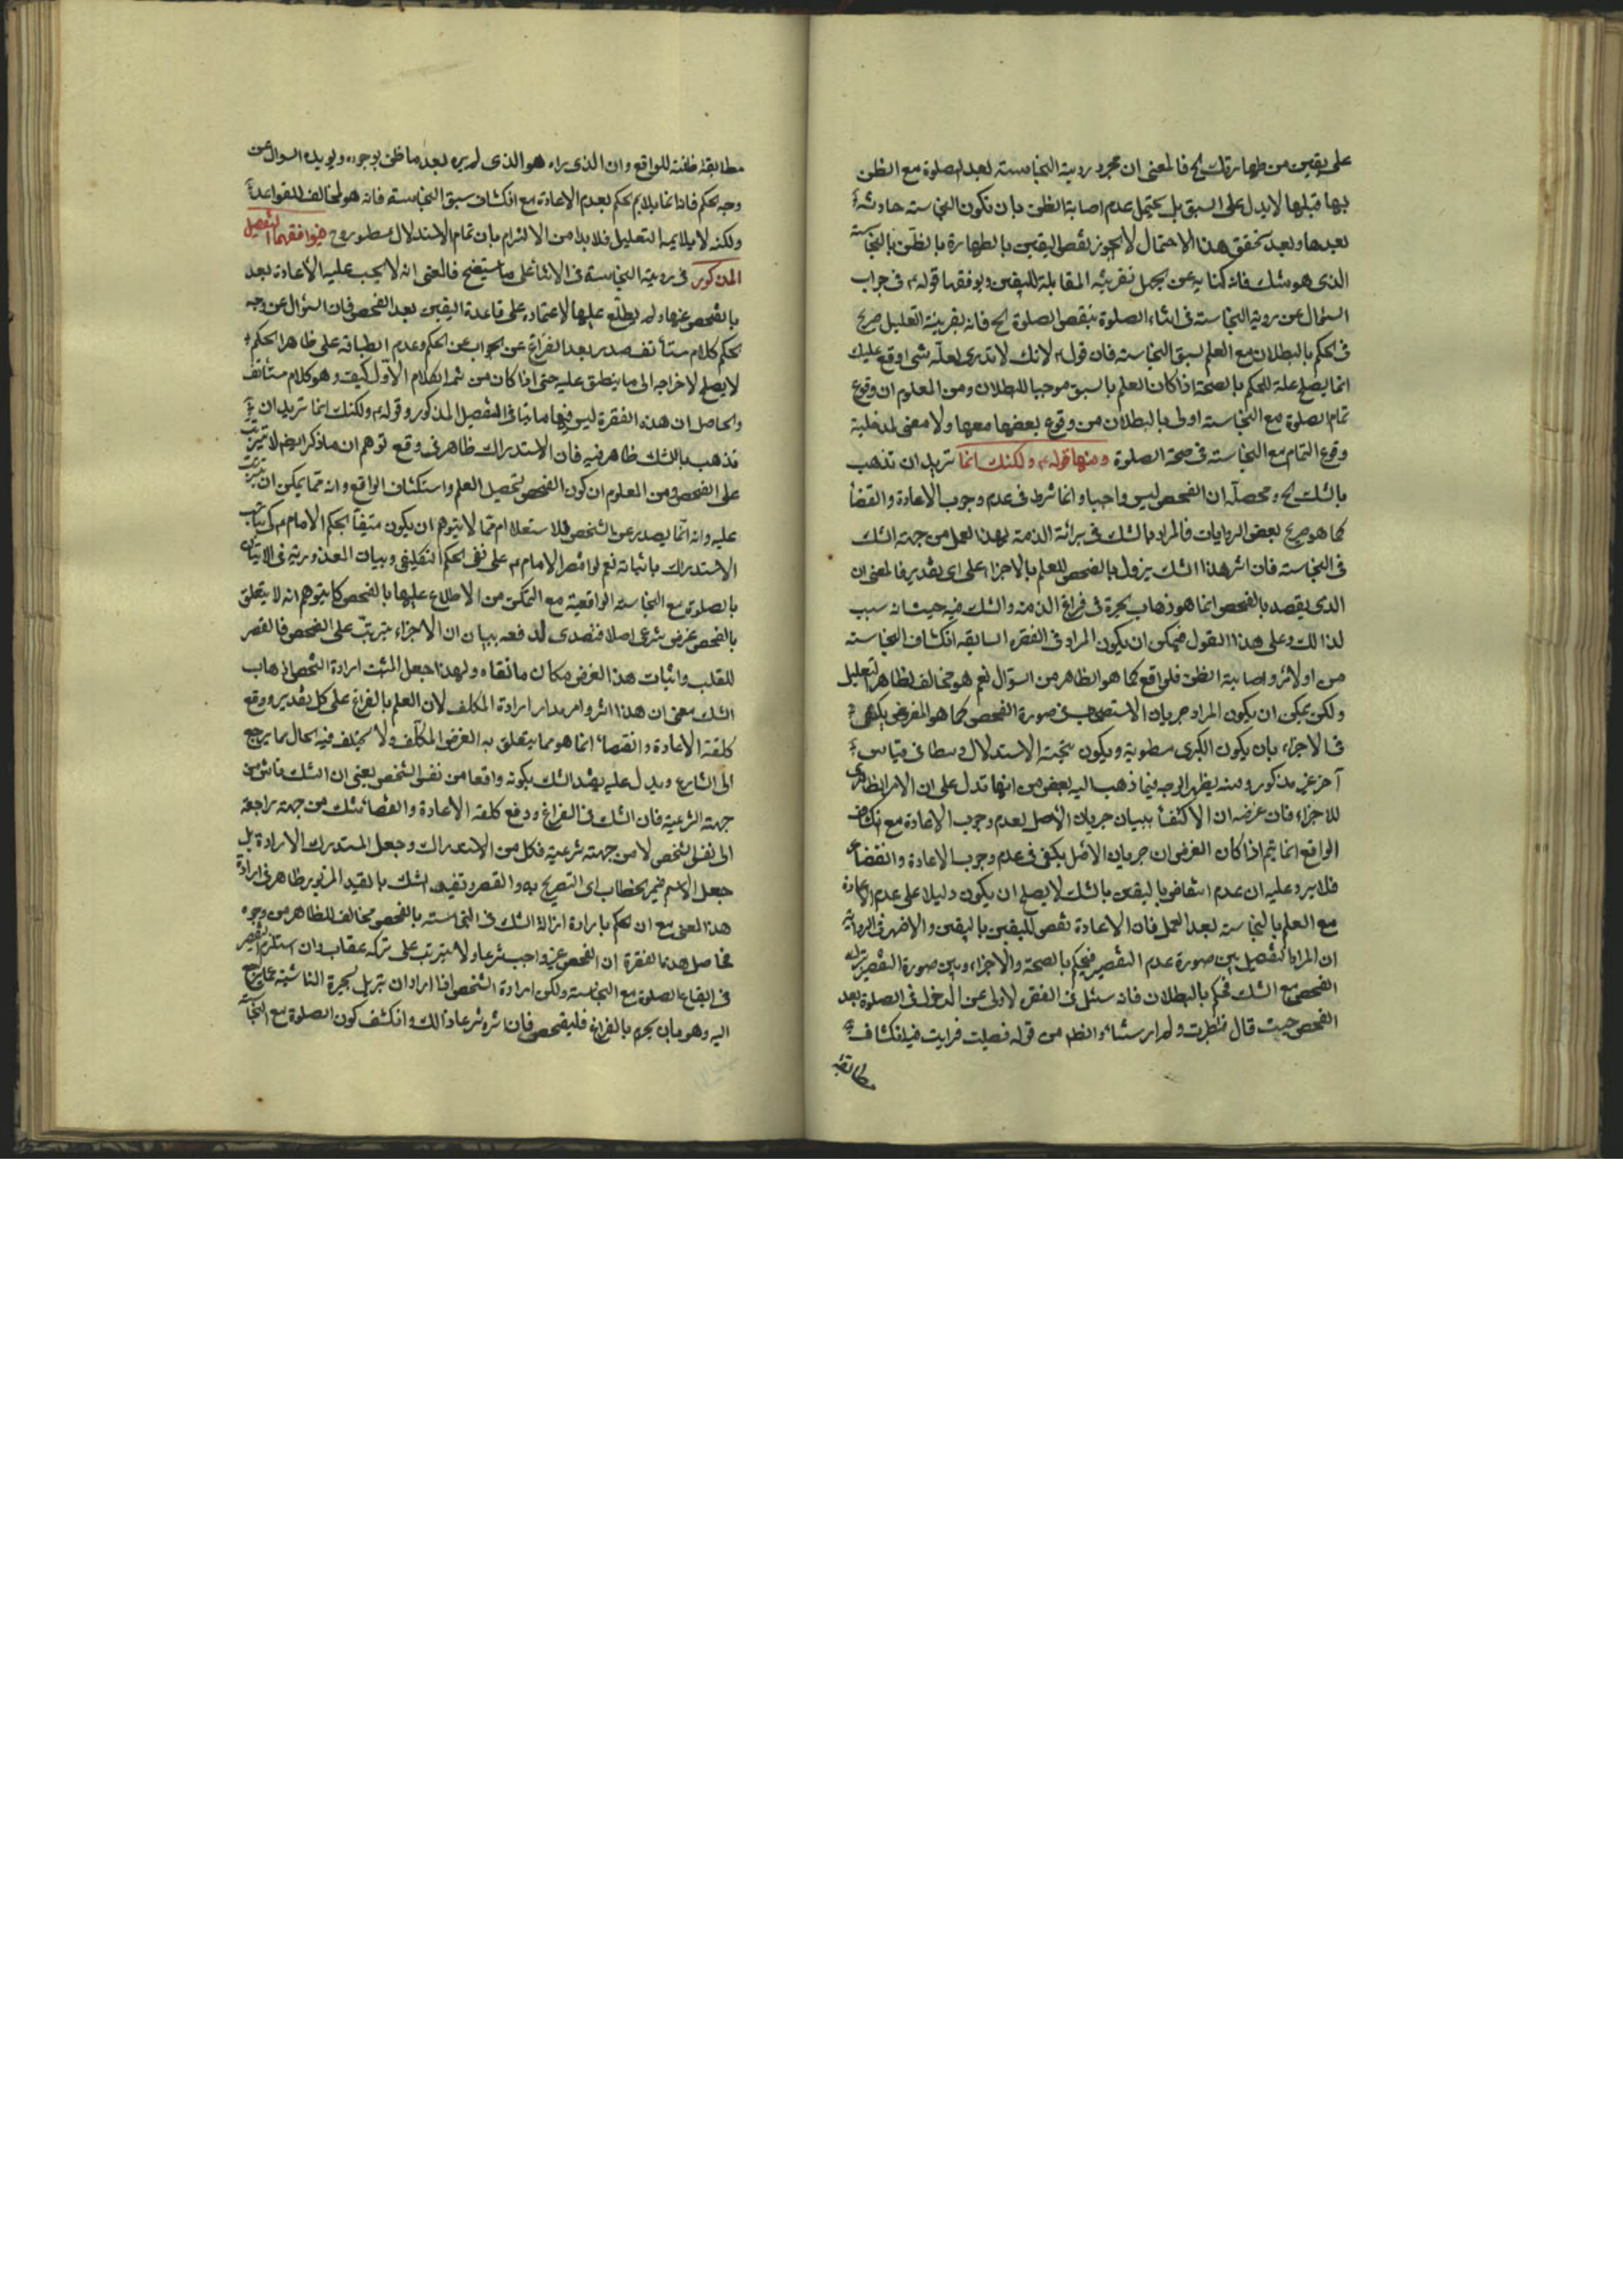 على يقين من طهارتك الخ فالمعنى ان مجرد روية النجاسة بعد الصلوة مع الظن
بها قبلها لا يدل على السبق بل يحتمل عدم اصابة الظن بان تكون النجاسة حادثة
بعدها وبعد تحقق هذا الاحتمال لا يجوز نقض اليقين بالطهارة بالظن بالنجاسة
الذى هو شك فانه كناية عن يحمل بقرينة المقابلة لليقين ويوفقها قوله ع في جواب
السؤال عن روية النجاسة في اثناء الصلوة ينقض الصلوة الخ فانه بقرينة التعليل صريح
في الحكم بالبطلان مع العلم بسبق النجاسة فان قوله لانك لا تدرى لعله شى اوقع عليك
انما يصلح علة للحكم بالصحة اذا كان العلم بالسبق موجبا للبطلان ومن المعلوم ان وقوع
تمام الصلوة مع النجاسة اولى بالبطلان من وقوع بعضها معها ولا معنى لمدخلية
وقوع التمام مع النجاسة في صحة الصلوة ومنها قوله ع ولكنك انما تريد ان تذهب
بالشك الخ ومحصله ان الفحص ليس واجبا وانما شرط في عدم وجوب الاعادة والقضأ
كما هو صريح بعض الروايات فالمراد بالشك في برائة الذمة بهذا العمل من جهة الشك
في النجاسة فان اثر هذا الشك يزول بالفحص للعلم بالاجزاء على اى تقدير فالمعنى ان
الذى يقصد بالفحص انما هو ذهاب الحيرة في فراغ الذمة والشك فيه حيث انه سبب
لذالك وعلى هذا القول فيمكن ان يكون المراد في الفقرة السابقه انكشاف النجاسة
من اولائر واصابة الظن فلواقع كما هو الظاهر من السؤال نعم هو مخالف لظاهر التعليل
ولكن يمكن ان يكون المراد جريان الاستصحاب في صورة الفحص كما هو المفروض يكفى
في الاجزاء بان يكون الكبرى مطوية ويكون نتيجة الاستدلال وسطا في قياس
آخر غير مذكور ومنه يظهر الوجه فيما ذهب اليه بعض من انها تدل على ان الامر الظاهرى
للاجزاء فان غرضه ان الاكتفأ ببيان جريان الاصل لعدم وجوب الاعادة مع انكشاف
الواقع انما يتم اذا كان الغرض ان جريان الاصل يكفى في عدم وجوب الاعادة والقضاء
فلا يرد عليه ان عدم انتقاض باليقين بالشك لا يصلح ان يكون دليلا على عدم الاعادة
مع العلم بالنجاسة بعد العمل فان الاعادة نقض لليقين باليقين والاظهر في الرواية
ان المراد التفصيل بين صورة عدم التقصير فيحكم بالصحة والاجزاء وبين صورة التقصير بترك
الفحص مع الشك فيحكم بالبطلان فانه سئل في الفقرة الاولى عن الدخول في الصلوة بعد
الفحص حيث قال فنظرت ولم ار شيئا والظهر من قوله فصليت فرايت فيه انكشاف
مطابقة
مطابقة ظنه للواقع وان الذى راه هو الذى لم يره بعد ما ظن بوجوده ويويده السوال عن
وجه الحكم فانه انما يلايم الحكم بعدم الاعادة مع انكشاف سبق النجاسة فانه هو المخالف للقواعد
ولكنه لا يلايمه التعليل فلا بد من الالتزام بان تمام الاستدلال مطوى وح فيوافقهما التفصيل
المذكور في روية النجاسة في الاثناء على ما سيتضح فالمعنى انه لا يجب عليه الاعادة بعد
بالفحص عنها ولم يطلع عليها لاعتماده على قاعدة اليقين بعد الفحص فان السؤال عن وجه
الحكم كلام مستأنف صدر بعد الفراغ عن الجواب عن الحكم وعدم انطباقه على ظاهر الحكم
لا يصلح لاخراجه الى ما ينطبق عليه حتى اذا كان من تتمة الكلام الاول كيف وهو كلام مستأنف
والحاصل ان هذه الفقرة ليس فيها ما ينافى التفصيل المذكور وقوله ع ولكنك انما تريد ان
تذهب بالشك ظاهر فيه فان الاستدراك ظاهر في وقع توهم ان ما ذكر ايضا لا يترتب
على الفحص ومن المعلوم ان كون الفحص لتحصيل العلم واستكشاف الواقع وانه مما يمكن ان يترتب
عليه وانه انما يصدر عن الشخص للاستعلام مما لا يتوهم ان يكون متيفأ بحكم الامام ع كى يناسب
الاستدراك باثباته نعم لو اقتصر الامام ع على نفى الحكم التكليفى وبيان المعذورية في الاتيان
بالصلوة مع النجاسة الواقعية مع التمكن من الاطلاع عليها بالفحص كان يتوهم انه لا يتعلق
بالفحص غرض شرعى اصلا فتصدى لدفعه ببيان ان الاجزاء مترتب على الفحص فالقصر
للقلب واثبات هذا الغرض مكان ما نفاه ولهذا جعل المثبت ارادة الشخص اذهاب
الشك معنى ان هذا اثر وامر مدار ارادة المكلف لان العلم بالفراغ على كل تقدير ووقع
كلفة الاعادة والقضاء انما هو مما يتعلق به الغرض المكلف ولا يختلف فيه الحال بما يرجع
الى الشارع ويدل عليه تقييد الشك بكونه واقعا من نفس الشخص يعنى ان الشك ناش من
جهة الشرعية فان الشك في الفراغ ودفع كلفة الاعادة والقضاء شك من جهة راجعة
الى نفس الشخص لا من جهة شرعية فكل من الاستدراك وجعل المستدرك الارادة بل
جعل الاسم ضمير الخطاب اى التصريح به والقصر وتقييد الشك بالقيد المزبور ظاهر في ارادة
هذا المعنى مع ان الحكم بارادة ازالة الشك في النجاسة بالفحص مخالف للظاهر من وجوه
فحاصل هذه الفقرة ان الفحص غير واجب شرعا ولا يترتب على تركه عقاب وان استلزم التقصير
في ايقاع الصلوة مع النجاسة ولكن ارادة الشخص اذا اراد ان يزيل الحيرة الناشية عما يرجع
اليه وهو ما بان يجزم بالفراغ فليفحص فان اثره شرعا ذالك وانكشف كون الصلوة مع النجاسة